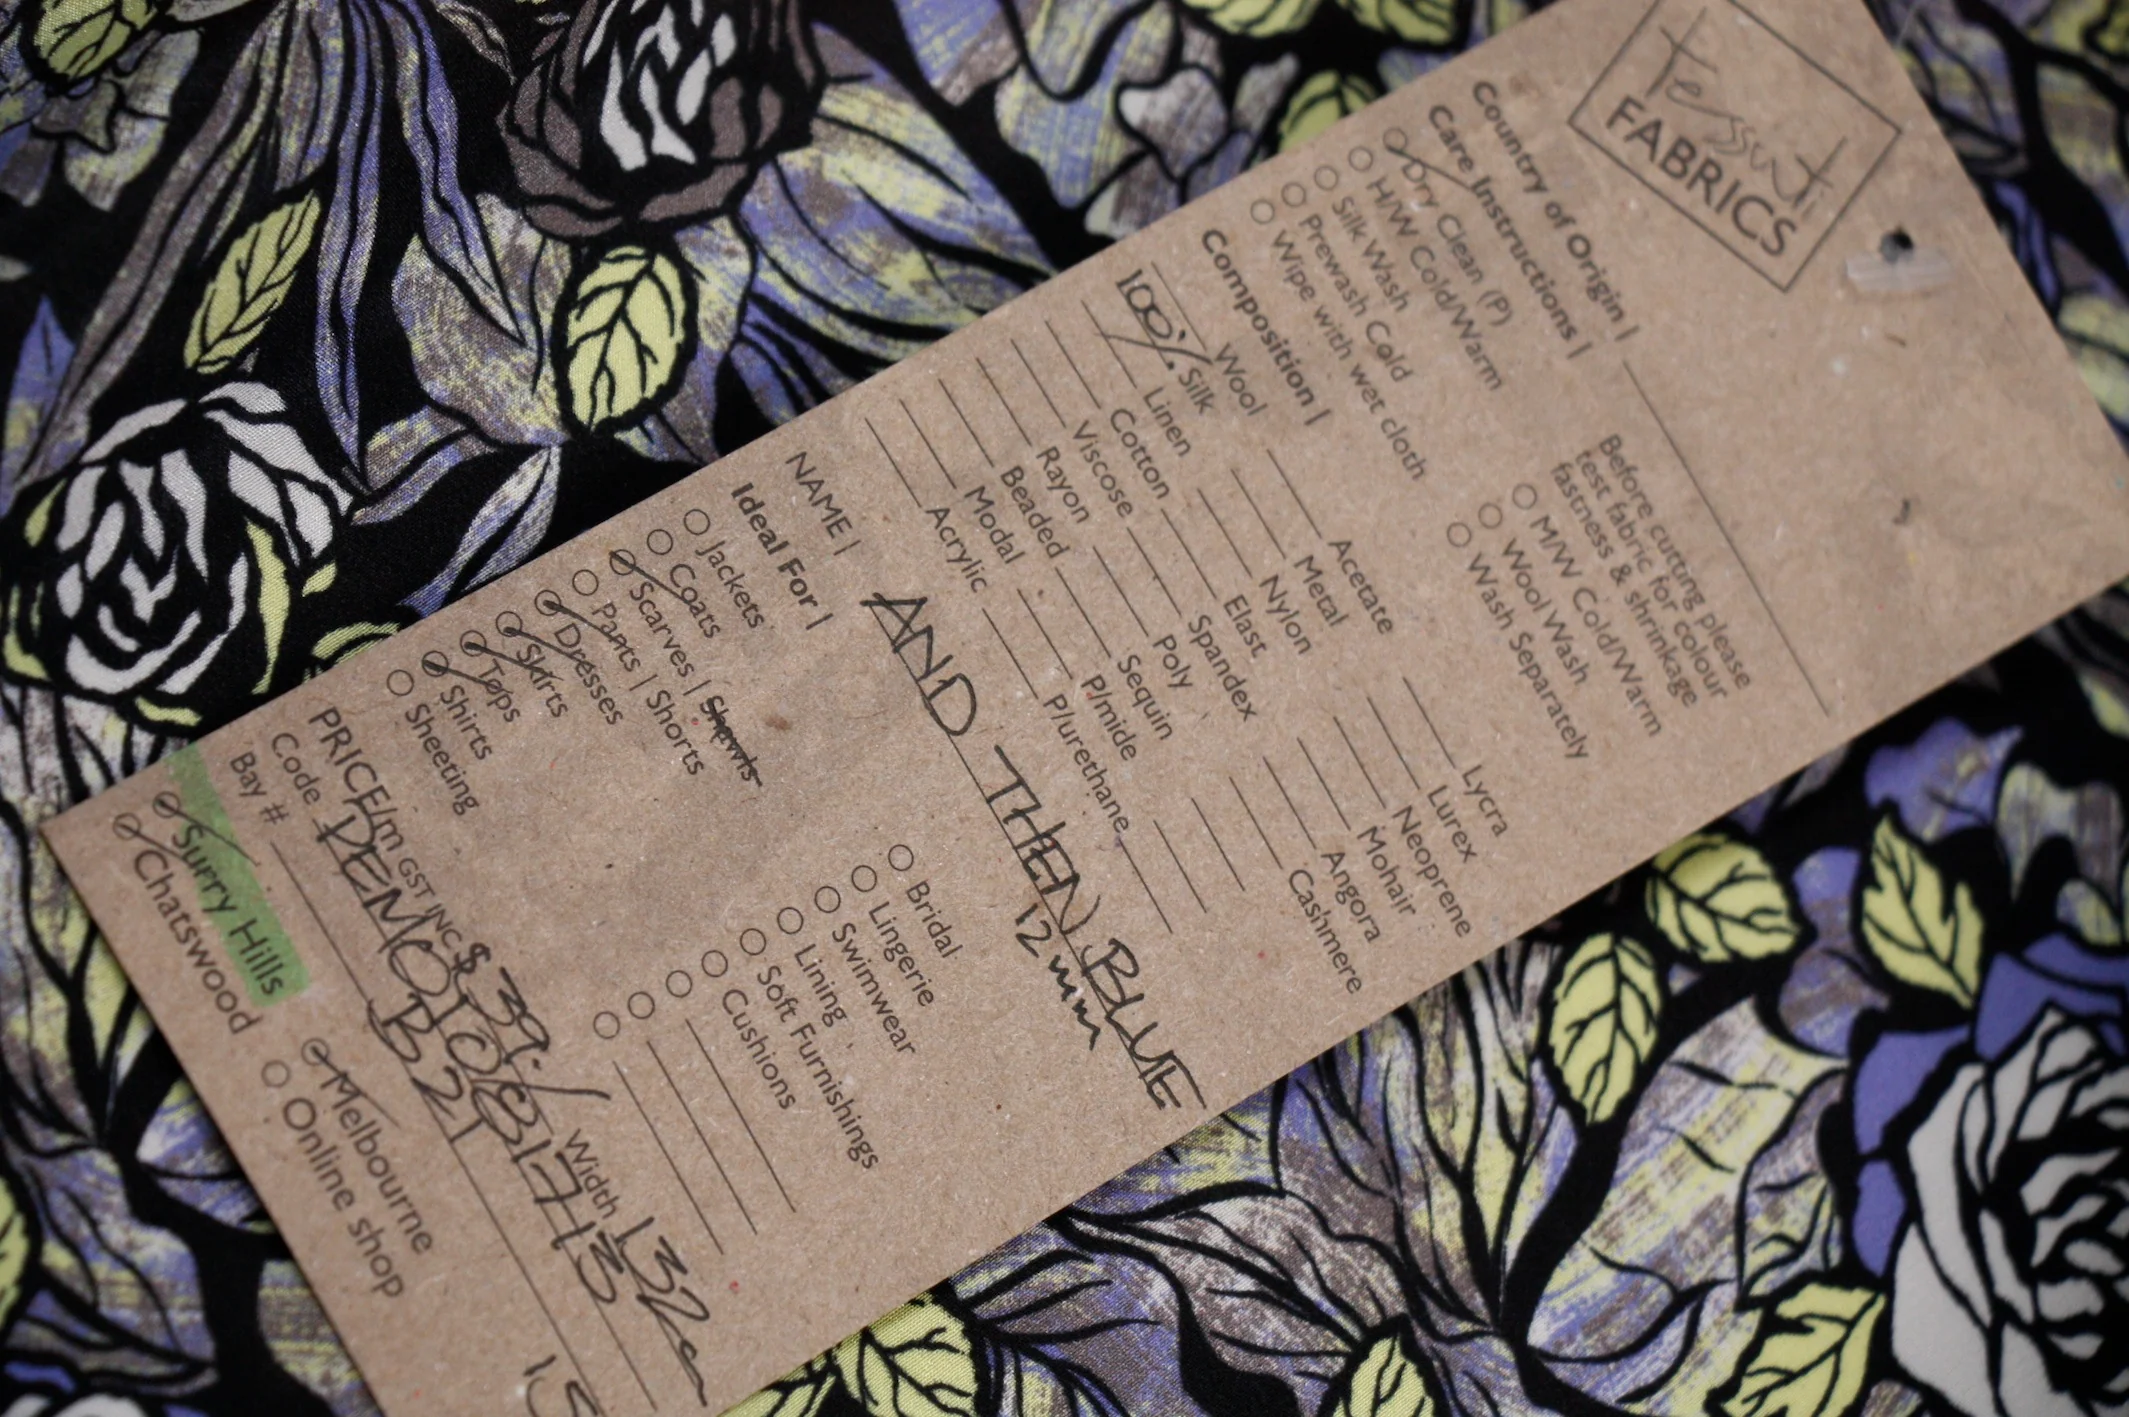 Tessuti
FABRICS
Country of Origin |
Care Instructions |
Dry Clean (P)
H/W Cold/Warm
Silk Wash
Prewash Cold
Wipe with wet cloth
Before cutting please
test fabric for colour
fastness & shrinkage
M/W Cold/Warm
Wool Wash
Wash Separately
Composition |
Wool Acetate Lycra
100% Silk Metal Lurex
Linen Nylon Neoprene
Cotton Elast Mohair
Viscose Spandex Angora
Rayon Poly Cashmere
Beaded Sequin
Modal P/mide
Acrylic P/urethane
NAME | AND THEN BLUE
12mm
Ideal For |
Jackets Bridal
Coats Lingerie
Scarves | Shawls Swimwear
Pants | Shorts Lining
Dresses Soft Furnishings
Skirts Cushions
Tops
Shirts
Sheeting
PRICE/m GST INC $39. Width 132cm
Code DEMO1081713
Bay # B21
Surry Hills Melbourne
Chatswood Online shop